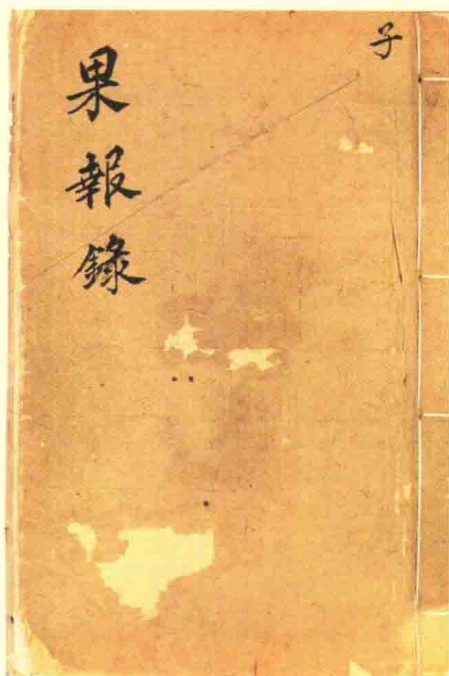 子
果報錄